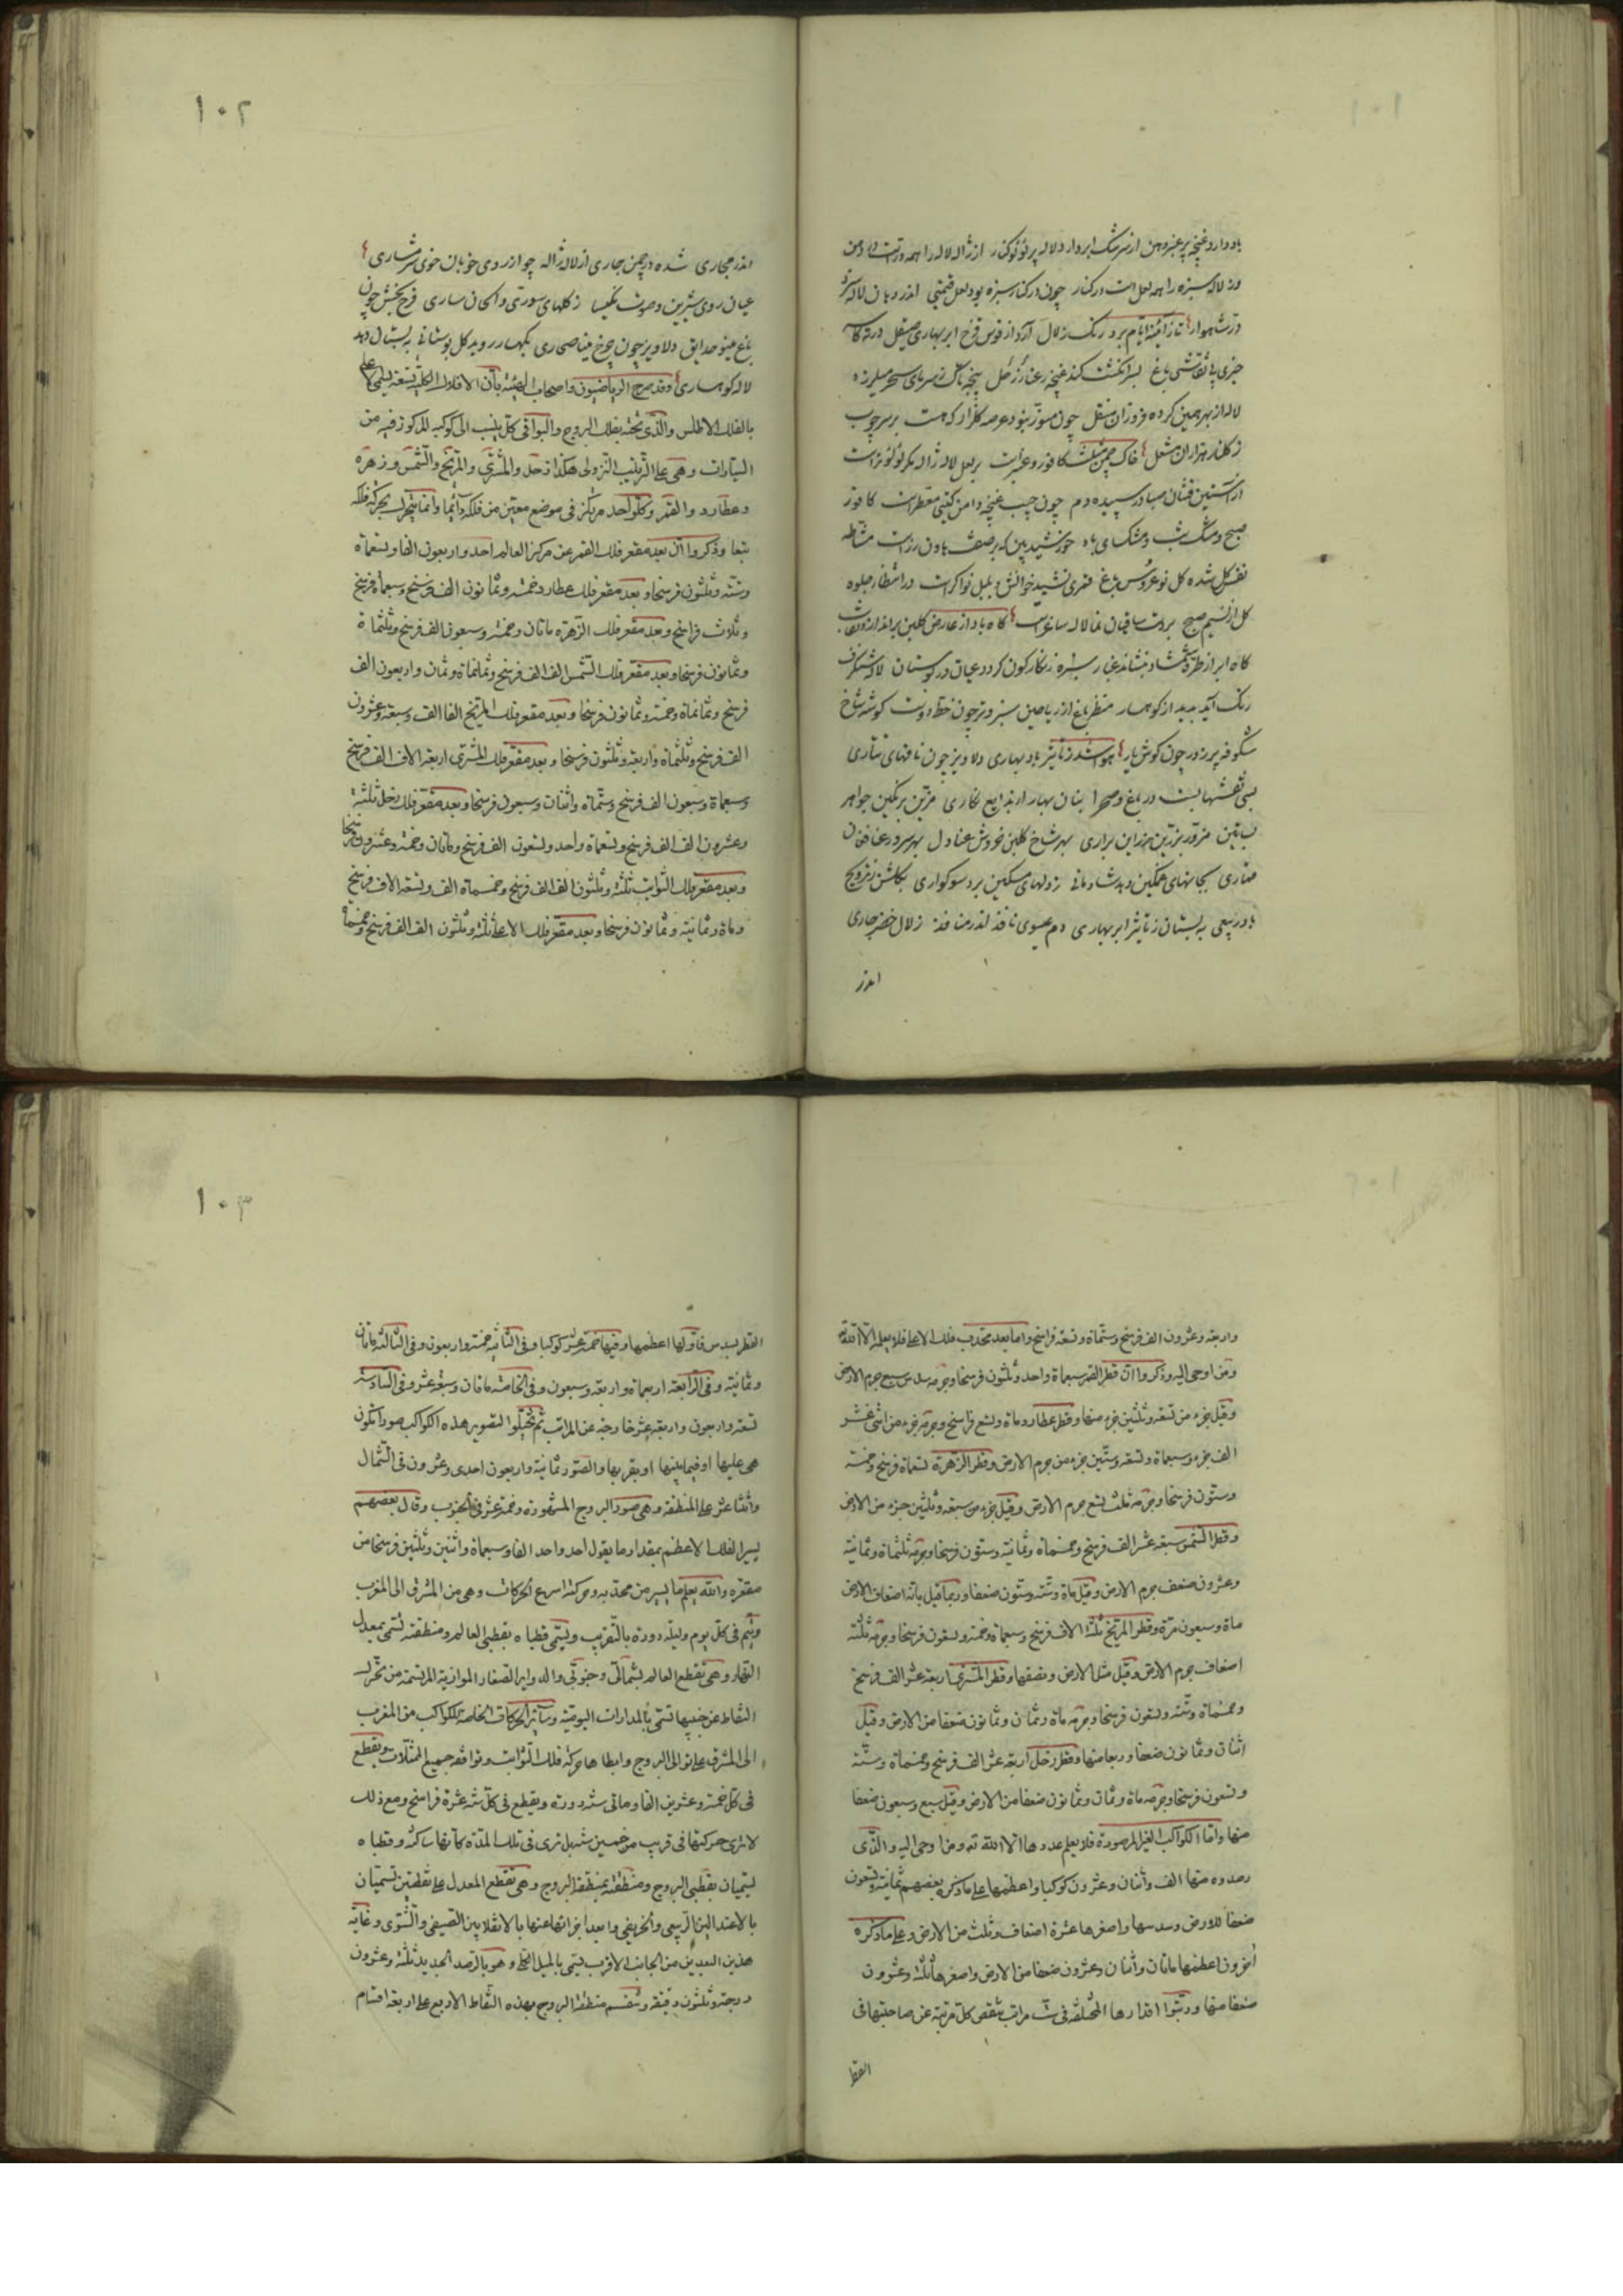 ۱۰۱
باد دارد غنچه پر عنبر دهن از سرشک ابر دارد لاله پر لؤلؤ کنار از ژاله لاله را همه در است در دهن
وز لاله سبزه را همه لعل است در کنار چون در کنار سبزه بود لعل قیمتی اندر دهان لاله سزد
در شاهوار تا ز آئینه ایام برد رنک زلال آرد از قوس قزح ابر بهاری صیقل
باغ بسر انکشت کند غنچه رعنا
لاله از بهر همین کرده فروزان منقل چون منور نبود عرصه کلزار که هست بر سر چوب
ز کلنار هزاران مشعل خاک چمن مثلث کافور و عنبر است بر لعل لاله ژاله مکر لؤلؤ تر است
از آستین فشان صبا در سپیده دم چون جیب غنچه دامن کیتی معطر است کافور
صبح و مشک شب و مشک سای باد خورشید بین که بر صف هاون زر است مشاطه
شده کل نو عروس باغ قمری نشید خوانش و بلبل نواکر است در انتظار جلوه
کل از نسیم صبح بر دست ساقیان نما لاله ساغر است کاه باد از عارض کلبن بر اندازد نقاب
کاه ابر از طره شمشاد بنشاند غبار سبزه زنکار کون کردد عیان در بوستان لاله شنکرف
رنک آید پدید از کوهسار منظر باغ از ریاحین سبز و تر چون خط دوست کوشه شاخ
شکوفه پر ز در چون کوش یار هوا شد ز تأثیر باد بهاری دلاویز چون نافهای تتاری
بسی نقشها بست در باغ و صحرا بنان بهار از بدایع نکاری مزین برنکین جواهر
بساتین مزور بزرین مزر این براری بهر شاخ کلبن خروش عنادل بهر سرو رعنا فغان
قماری بجانهای غمکین دهد شادمانی ز دلهای مسکین برد سوکواری بکلشن ز ترویح
باد ربیعی به بستان ز تأثیر ابر بهاری دم عیسوی نافذ اندر منافذ زلال خضر جاری
اندر
۱۰۲
اندر مجاری شده در چمن جاری از لاله ژاله چو از روی خوبان خوی شرمساری
عیان روی شیرین و صوت نکیسا ز کلهای سوری و الحان ساری فرح بخش چون
باغ مینو حدایق دلاویز چون چرخ مینا صحاری بکهسار روید کل بوستانی به بستان دمد
لاله کوهساری وقد صرح الریاضیون واصحاب الهیئة بأن الافلاک الکلیة تسعة یسمی الاعلی
بالفلک الاطلس والذی تحته بفلک البروج والبواقی کل ینسب الی کوکبه المرکوز فیه من
السیارات وهی علی الترتیب النزولی هکذا زحل والمشتری والمریخ والشمس وزهرة
وعطارد والقمر وکل واحد مرتکز فی موضع معین من فلکه دائما وانما یتحرک بحرکة فلکه
تبعا وذکروا ان بعد مقعر فلک القمر عن مرکز العالم احد واربعون الفا وتسعماة
وستة وثلثون فرسخا وبعد مقعر فلک عطارد خمسة وثمانون الف فرسخ وسبعماة فرسخ
وثلاث فراسخ وبعد مقعر فلک الزهرة ماتان وخمسة وسبعون الف فرسخ وثلثماة
وثمانون فرسخا وبعد مقعر فلک الشمس الف الف فرسخ وثمانماة وثمان واربعون الف
فرسخ وثمانماة وخمسة وثمانون فرسخا وبعد مقعر فلک المریخ الفا الف وسبعة وعشرون
الف فرسخ وثلثماة واربعة وثلثون فرسخا وبعد مقعر فلک المشتری اربعة الاف الف فرسخ
وسبعماة وسبعون الف فرسخ وستماة واثنان وسبعون فرسخا وبعد مقعر فلک زحل ثلثة
وعشرون الف الف فرسخ وتسعماة واحد وتسعون الف فرسخ وماتان وخمسة وعشرون فرسخا
وبعد مقعر فلک الثوابت ثلثة وثلثون الف الف فرسخ وخمسماة الف وتسعة الاف فرسخ
وماة وثمانیة وثمانون فرسخا وبعد مقعر فلک الاعلی ثلثة وثلثون الف الف فرسخ وخمسماة
واربعة وعشرون الف فرسخ وستماة وتسعة فراسخ واما بعد محدب فلک الاعلی فلا یعلمه الا الله
ومن اوحی الیه وذکروا ان قطر القمر سبعماة واحد وثلثون فرسخا وجرمه سدس سبع جرم الارض
وقیل جزء من تسعة وثلثین جزء منها وقطر عطارد ماة وتسع فراسخ وجرمه جزء من اثنی عشر
الف جزء وسبعماة وتسعة وستین جزء من جرم الارض وقطر الزهرة تسعماة فرسخ وخمسة
وستون فرسخا وجرمه ثلث تسع جرم الارض وقیل جزء من سبعة وثلثین جزء من الارض
وقطر الشمس سبعة عشر الف فرسخ وخمسماة وثمانیة وستون فرسخا وجرمه ثلثماة وثمانیة
وعشرون ضعف جرم الارض وقیل ماة وستة وستون ضعفا وربما قیل بانه اضعاف الارض
ماة وسبعون مرة وقطر المریخ ثلثة الاف فرسخ وسبعماة وخمسة وتسعون فرسخا وجرمه ثلثة
اضعاف جرم الارض وقیل مثل الارض ونصفها وقطر المشتری اربعة عشر الف فرسخ
وخمسماة وستة وتسعون فرسخا وجرمه ماة وثمان وثمانون ضعفا من الارض وقیل
اثنان وثمانون ضعفا وربعا منها وقطر زحل اربعة عشر الف فرسخ وخمسماة وستة
وتسعون فرسخا وجرمه ماة وثمان وثمانون ضعفا من الارض وقیل سبع وسبعون ضعفا
منها واما الکواکب الغیر المرصودة فلا یعلم عددها الا الله ته ومن اوحی الیه والذی
رصدوه منها الف واثنان وعشرون کوکبا واعظمها علی ما ذکره بعضهم ثمانیة وتسعون
ضعفا للارض وسدسها واصغرها عشرة اضعاف وثلث من الارض وعلی ما ذکره
آخرون اعظمها ماتان واثنان وعشرون ضعفا من الارض واصغرها ثلثة وعشرون
ضعفا منها ورتبوا اقدارها المختلفة فی ست مراتب ینقص کل مرتبة عن صاحبتها فی
القطر
۱۰۳
القطر بسدس فاولها اعظمها وفیها خمسة عشر کوکبا وفی الثانیة خمسة واربعون وفی الثالثة ماتان
وثمانیة وفی الرابعة اربعماة واربعة وسبعون وفی الخامسة ماتان وسبعة عشر وفی السادسة
تسعة واربعون واربعة عشر خارجة عن المراتب ثم تخیلوا لتصویر هذه الکواکب صورا تکون
هی علیها او فیما بینها او بقربها والصور ثمانیة واربعون احدی وعشرون فی الشمال
واثنتا عشر علی المنطقة وهی صور البروج المشهورة وخمسة عشر فی الجنوب وقال بعضهم
یسیر الفلک الاعظم بمقدار ما یقول احد واحد الفا وسبعماة واثنین وثلثین فرسخا من
مقعره والله یعلم ما یسیر من محدبه وحرکته اسرع الحرکات وهی من المشرق الی المغرب
ویتم فی کل یوم ولیلة دورة بالتقریب ویسمی قطباه بقطبی العالم ومنطقته تسمی بمعدل
النهار وهی تقطع العالم بشمالی وجنوبی والدوایر الصغار الموازیة المرتسمة من تحرک
النقاط عن جنبیها تسمی بالمدارات الیومیة وسایر الحرکات الخاصة للکواکب من المغرب
الی المشرق علی توالی البروج وابطاها حرکة فلک الثوابت وتوافقه جمیع الممثلات ویقطع
فی کل خمسة وعشرین الفا وماتی سنة دورة ویقطع فی کل سنة عشرة فراسخ ومع ذلک
لا یری حرکتها فی قریب من خمسین سنة بل تری فی تلک المدة کانها ساکنة وقطباه
یسمیان بقطبی البروج ومنطقته بمنطقة البروج وهی تقطع المعدل علی نقطتین تسمیان
بالاعتدالین الربیعی والخریفی وابعد اجزائها عنها بالانقلابین الصیفی والشتوی وغایة
هذین البعدین من الجانب الاقرب یسمی بالمیل الکلی وهو بالرصد الجدید ثلثة وعشرون
درجة وثلثون دقیقة وتنقسم منطقة البروج بهذه النقاط الاربع علی اربعة اقسام